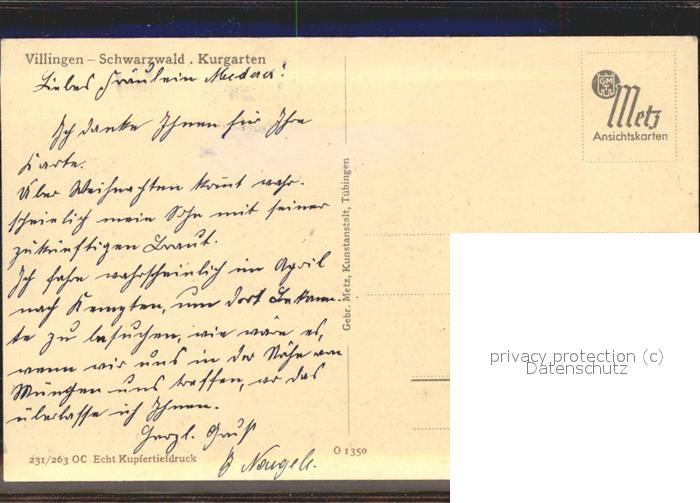 Villingen – Schwarzwald . Kurgarten
Liebes Fräulein
Ich danke Ihnen für Ihre
Karte.
Über Weihnachten kommt wahr-
scheinlich mein Sohn mit seiner
zukünftigen Braut.
Ich fahre wahrscheinlich im April
nach Kempten, um dort Bekann-
te zu besuchen, wie wäre es,
wenn wir uns in der Nähe von
München uns treffen, das
überlasse ich Ihnen.
Herzl. Gruß
231/263 OC Echt Kupfertiefdruck
O 1350
Gebr. Metz, Kunstanstalt, Tübingen
GM
T
Metz
Ansichtskarten
privacy protection (c)
Datenschutz